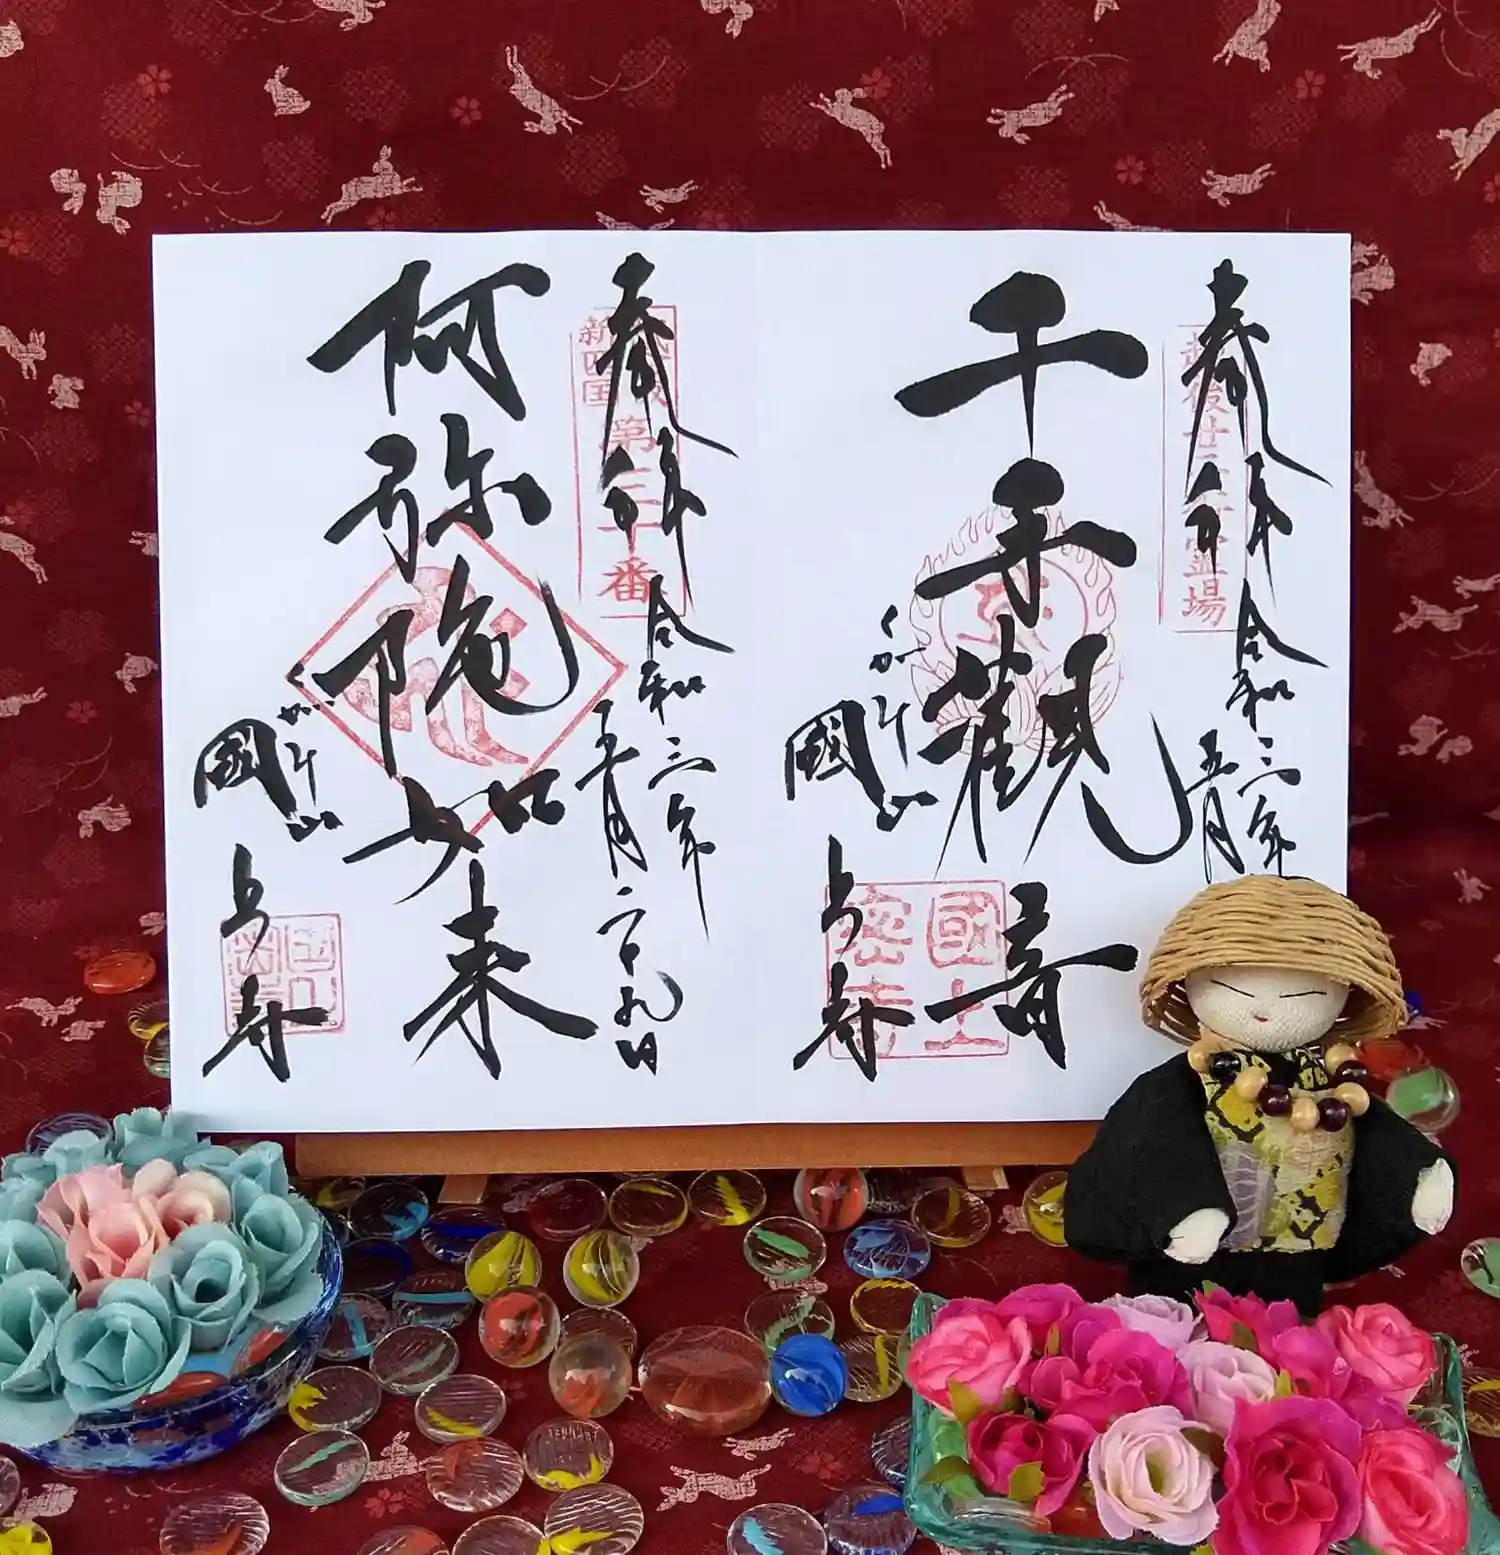 奉拝 令和三年
五月
千手觀音
くがみ山
國上寺
國上
奉拝 令和三年
五月二十九日
新四国
阿弥陀如来
くがみ山
國上寺